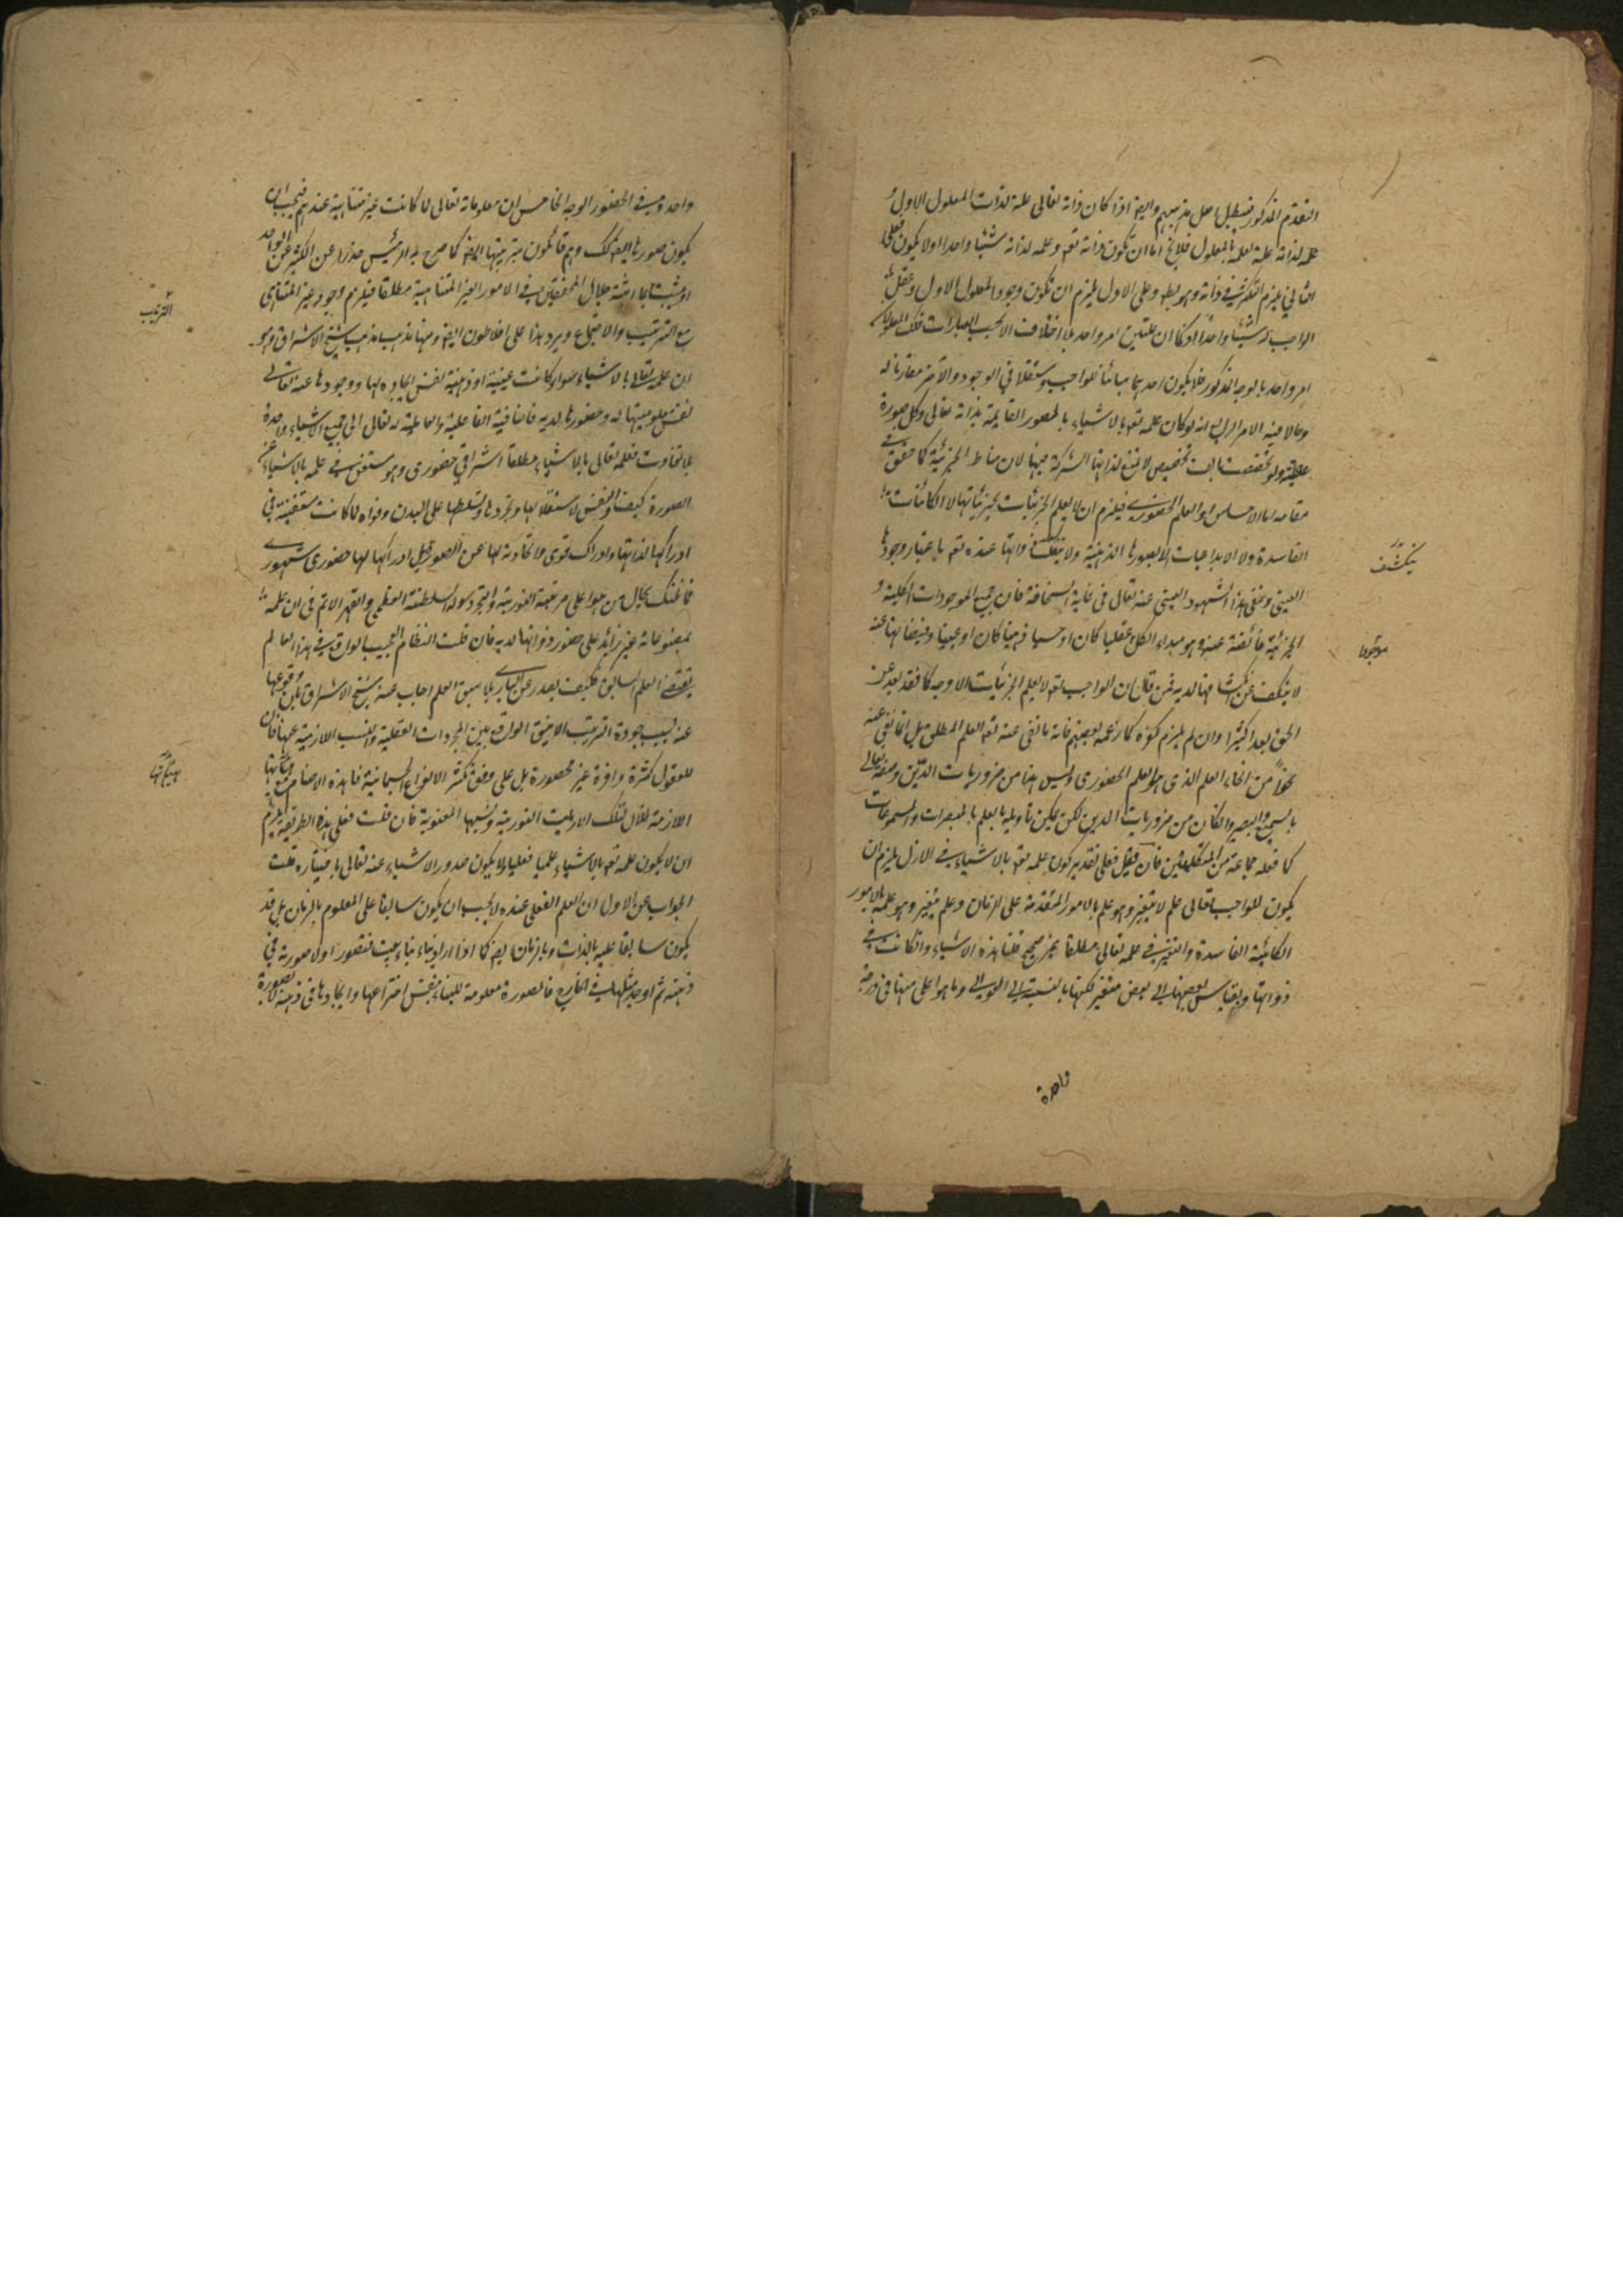 التقدم المذكور فيبطل اصل مذهبهم وايضا اذا كان ذاته تعالى علة لذات المعلول الاول و
علمه لذاته علة لعلمه بالمعلول فلا يخ اما ان تكون ذاته تعم وعلمه لذاته شيئا واحدا اولا يكون فعلى
الثاني يلزم التكثر في ذاته وهو بط وعلى الاول يلزم ان تكون وجود المعلول الاول وعقل
الواجب له شيئا واحدا اذ كما ان علتين امر واحد بلا اختلاف الا بحسب العبارات فكذلك المعلولان
امر واحد بالوجه المذكور فلا يكون احدهما مباينا للواجب مستقلا في الوجود والآخر مقارنا له
وحالا فيه الامر الرابع انه لو كان علمه تعم بالاشياء بالصور القائمة بذاته تعالى وكل صورة
عقلية ولو تخصصت بالف تخصيص لا تمنع لذاتها الشركة فيها لان مناط الجزئية كما حقق في
مقامه اما الاحساس او العلم الحضوري فيلزم ان لا يعلم الجزئيات بجزئياتها لا الكائنات
الفاسدة ولا الابداعيات الا بصورها الذهنية ولا ينكشف ذواتها عنده تعم باعتبار وجودها
العيني ونفي هذا الشهود العيني عنه تعالى في غاية السخافة فان جميع الموجودات الكلية و
الجزئية فائضة عنه وهو مبداء لكل عقليا كان او حسيا ذهنيا كان او عينيا وفيضانها عنه
لا ينفك عن انكشافها لديه فمن قال ان الواجب تعم لا يعلم الجزئيات الا بوجه كلي فقد بعد عن
الحق بعدا كثيرا وان لم يلزم كفره كما زعمه بعضهم فانه ما نفى عنه تعم العلم المطلق بل انما نفى عنه
نحوا من انحاء العلم الذي هو العلم الحضوري وليس هذا من ضروريات الدين وصفه تعالى
بالسميع والبصير وان كان من ضروريات الدين لكن يمكن تاويله بالعلم بالمبصرات والمسموعات
كما فعله جماعة من المتكلمين فان قيل فعلى تقدير كون علمه تعم بالاشياء في الازل يلزم ان
يكون للواجب تعالى علم لا يتغير وهو علم بالامور المتقدمة على الزمان وعلم متغير وهو علمه بالامور
الكائنة الفاسدة والتغير في علمه تعالى مطلقا غير صحيح قلنا هذه الاشياء وان كانت في
ذواتها وبقياس بعضها الى بعض متغير لكنها بالنسبة الى العوالي وما هو اعلى منها في درجة
ينكشف
موجود
واحدة
واحدة في الحضور الوجه الخامس ان معلوماته تعالى لما كانت غير متناهية عندهم فيجب ان
يكون صورها ايضا كك وهم قائلون بترتيبها ايضا كما صرح به الرئيس حذرا عن الكثرة عن الواحد
مع الترتيب والاجتماع ويرد هذا على افلاطون ايضا ومنها مذهب شيخ الاشراق وهو
ان علمه تعالى بالاشياء سواء كانت عينية او ذهنية نفس ايجاده لها ووجودها عنه تعالى
نفس معلوميتها له وحضورها لديه فاضافية الفاعلية والعالمية له تعالى الى جميع الاشياء واحدة
بلا تفاوت فعلمه تعالى بالاشياء مطلقا اشراقي حضوري وهو مستغن في علمه بالاشياء عن
الصورة كيف والنفس لاستقلالها وتجردها وتسلطها على البدن وقواه لما كانت مستغنية في
ادراكها لذاتها وادراك قوى ما تحاوية لها عن الصور قبل ادراكها لها حضوري شهودي
فما ظنك بحال من هو اعلى مرتبة النورية والتجرد وله السلطنة العظمى والقهر الاتم في ان علمه
بمصنوعاته غير زائد على حضور ذواتها لديه فان قلت النظام العجيب الواقع في هذا العالم
يقتضي العلم السابق فكيف يصدر عن الباري بلا سبق العلم اجاب عنه شيخ الاشراق بان وقوعها
عنه بسبب جودة الترتيب الانيق الواقع بين المجردات العقلية والنسب اللازمية عنها فان
للعقول كثرة وافرة غير محصورة بل على وفق كثرة الانواع الجسمانية فما هذه الاصنام مع هيئاتها
اللازمة ظلال لتلك الارباب النورية ونسبها المعنوية فان قلت فعلى هذه الطريقة يلزم
ان لا يكون علمه تعم بالاشياء علما فعليا ولا يكون صدور الاشياء عنه تعالى باختياره قلت
الجواب عن الاول ان العلم الفعلي عنده لا يجب ان يكون سابقا على المعلوم بالزمان بل قد
يكون سابقا عليه بالذات وبالزمان ايضا كما اذا اراد بناء بناء بيت فتصور اولا صورته في
ذهنه ثم اوجد مثلها في الخارج فالصورة معلومة للبناء بنفس اختراعها وايجادها في ذهنه لا بصورة
الترتيب
هيئاتها